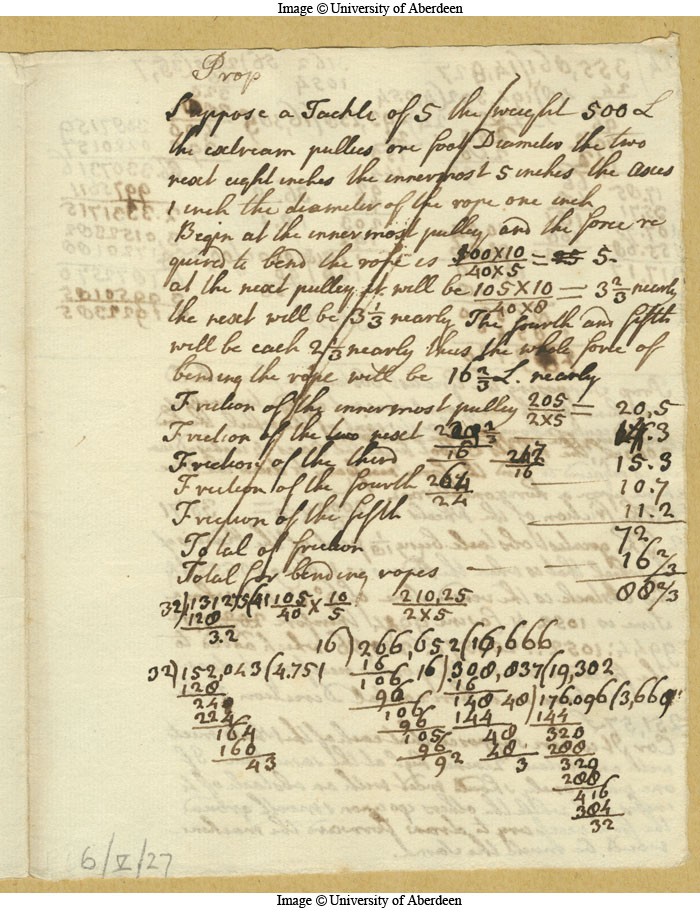 Image © University of Aberdeen
Prop
Suppose a Tackle of 5 the weight 500 L
the extream pullies one foot Diameter the two
next eight inches the innermost 5 inches the axes
1 inch the diameter of the rope one inch
Begin at the innermost pulley and the force re
quired to bend the rope is 100X10/40X5 = 25 5.
at the next pulley it will be 105X10/40X8 = 3 2/3 nearly
the next will be 3 1/3 nearly The fourth and fifth
will be each 2 1/3 nearly thus the whole force of
bending the rope will be 16 2/3 L. nearly
Friction of the innermost pulley 205/2X5 = 20,5
Friction of the two next 2/3 /16 14.3
Friction of the third 247/16 15.3
Friction of the fourth 264/24 10.7
Friction of the fifth 11.2
Total of friction 72
Total for bending ropes 16 2/3
88 2/3
32)1312)5(41 105/40 X 10/5 210,25/2X5
128
3.2
16)266,652(16,666
32)152,043(4.751 16 16)308,837(19,302
128 106 16 48)176.096(3,668
240 96 148 144
224 106 144 320
164 96 48 288
160 105 48 320
43 96 3 288
92 416
384
32
6/V/27
Image © University of Aberdeen